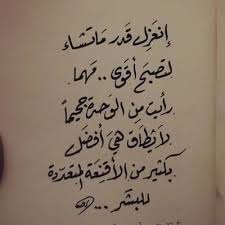 إنعزل قدر ماتشاء
لتصبح أقوى .. مهما
رأيت من الوحدة جحيماً
لا تطاق هي أفضل
بكثير من الأقنعة المتعددة
للبشر ...